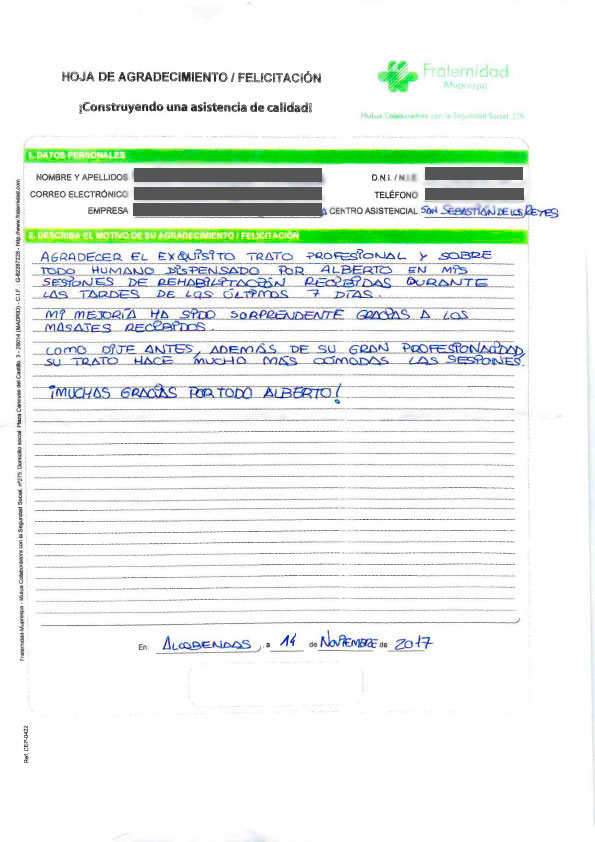 HOJA DE AGRADECIMIENTO / FELICITACIÓN
¡Construyendo una asistencia de calidad!
Fraternidad
Muprespa
Mutua Colaboradora con la Seguridad Social, 275
1. DATOS PERSONALES
NOMBRE Y APELLIDOS
D.N.I. / N.I.E.
CORREO ELECTRÓNICO
TELÉFONO
EMPRESA
CENTRO ASISTENCIAL SAN SEBASTIÁN DE LOS REYES
2. DESCRIBA EL MOTIVO DE SU AGRADECIMIENTO / FELICITACIÓN
AGRADECER EL EXQUISITO TRATO PROFESIONAL Y SOBRE
TODO HUMANO DISPENSADO POR ALBERTO EN MIS
SESIONES DE REHABILITACIÓN RECIBIDAS DURANTE
LAS TARDES DE LOS ÚLTIMOS 7 DÍAS.
MI MEJORÍA HA SIDO SORPRENDENTE GRACIAS A LOS
MASAJES RECIBIDOS.
COMO DIJE ANTES, ADEMÁS DE SU GRAN PROFESIONALIDAD,
SU TRATO HACE MUCHO MÁS CÓMODAS LAS SESIONES.
¡MUCHAS GRACIAS POR TODO ALBERTO!
En: ALCOBENDAS, a 14 de NOVIEMBRE de 2017
Fraternidad-Muprespa - Mutua Colaboradora con la Seguridad Social, nº275. Domicilio social: Plaza Cánovas del Castillo, 3 - 28014 (MADRID) - C.I.F.: G-82287228 - http://www.fraternidad.com
Ref. CEP-0422